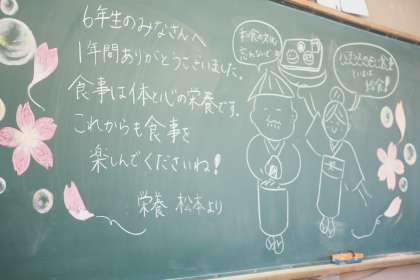 6年生のみなさんへ
1年間ありがとうございました。
食事は体と心の栄養です。
これからも食事を
楽しんでくださいね!
栄養 松本より
和食の文化
忘れないで!
といえば